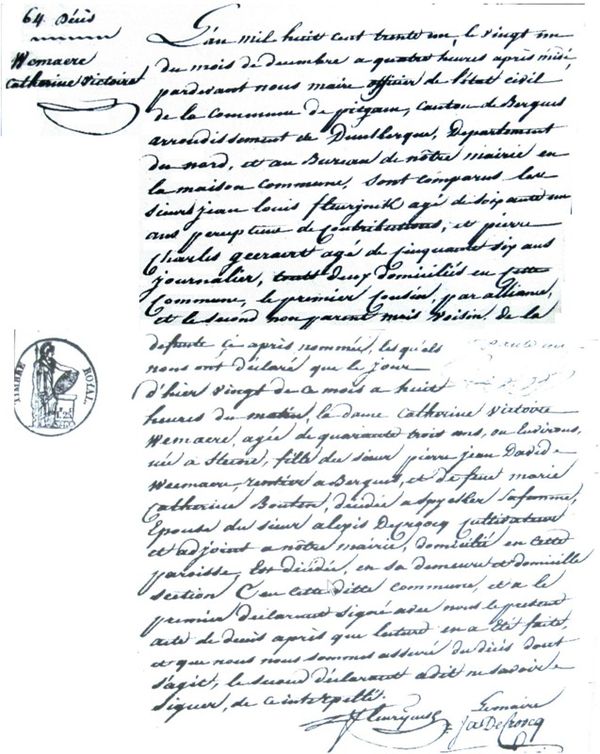 64. Décès
Wemaere
Catherine Victoire
L'an mil huit cent trente un, le vingt un
du mois de decembre a quatre heures après midi,
pardevant nous maire officier de l'état civil
de la Commune de pitgam, Canton de Bergues
arrondissement de Dunkerque, Departement
du nord, et au Bureau de nôtre mairie en
la maison commune, sont comparus les
sieurs jean louis fleurynck agé de soixante un
ans percepteur de contributions, et pierre
Charles geeraert agé de Cinquante six ans
journalier, touts deux domiciliés en cette
Commune, le premier Cousin, par alliance,
et le second non parent mais voisin de la
defunte ci après nommée, les quels
nous ont déclaré que le jour
d'hier vingt de ce mois a huit
heures du matin, la dame Catherine Victoire
Wemaere, agée de quarante trois ans, ou Environs,
née a Steene, fille du sieur pierre jean David
Wemaere, rentier a Bergues, et de feue marie
Catherine Bouten, décédée a spycker sa femme,
Epouse du sieur alexis Decrocq Cultivateur
et adjoint a nôtre mairie, domicilié en cette
paroisse, Est décédée, en sa demeure et domicille
section C en cette ditte commune, et a le
premier déclarant signé avec nous le present
acte de décès après que lecture en a Eté faite,
et que nous nous sommes assuré du décès dont
s'agit, le second déclarant a dit ne savoir
signer, de ce interpellé.
fleurynck
Lemaire
J. as DeCrocq
TIMBRE ROYAL